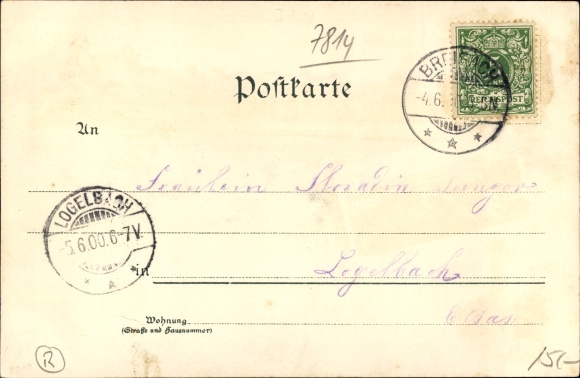 7814
Postkarte
BREISACH
-4.6.
REICHSPOST
An
Fräulein
LOGELBACH
-5.6.00.6-7V.
in Logelbach
Elsass
Wohnung
(Straße und Hausnummer)
R
15,-